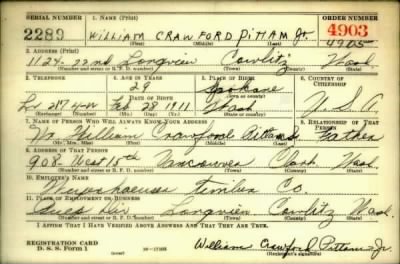 SERIAL NUMBER 1. NAME (Print) ORDER NUMBER
2289 WILLIAM CRAWFORD PITTAM Jr. 4903
(First) (Middle) (Last) 4905
2. ADDRESS (Print)
1124-22nd Longview Cowlitz Wash
(Number and street or R. F. D. number) (Town) (County) (State)
3. TELEPHONE 4. AGE IN YEARS 5. PLACE OF BIRTH 6. COUNTRY OF CITIZENSHIP
29 Spokane
DATE OF BIRTH
Lv 2874-W Feb 28 1911 Wash U.S.A.
(Exchange) (Number) (Mo.) (Day) (Yr.) (State or county)
7. NAME OF PERSON WHO WILL ALWAYS KNOW YOUR ADDRESS 8. RELATIONSHIP OF THAT PERSON
Mr. William Crawford Pittam Sr Father
(Mr., Mrs., Miss) (First) (Middle) (Last)
9. ADDRESS OF THAT PERSON
908 West 15th Vancouver Clark Wash.
(Number and street or R. F. D. number) (Town) (County) (State)
10. EMPLOYER'S NAME
Weyerhaeuser Timber Co.
11. PLACE OF EMPLOYMENT OR BUSINESS
Longview Cowlitz Wash.
(Number and street or R. F. D. number) (Town) (County) (State)
I AFFIRM THAT I HAVE VERIFIED ABOVE ANSWERS AND THAT THEY ARE TRUE.
REGISTRATION CARD
D. S. S. Form 1 16-17105 William Crawford Pittam Jr.
(Registrant's signature)